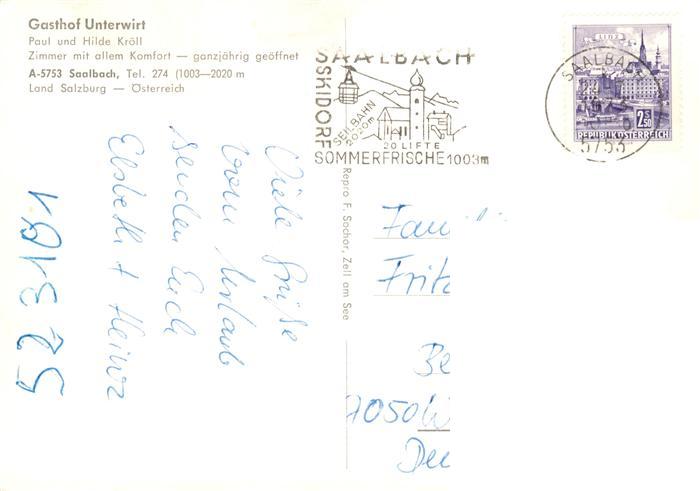 Gasthof Unterwirt
Paul und Hilde Kröll
Zimmer mit allem Komfort — ganzjährig geöffnet
A-5753 Saalbach, Tel. 274 (1003—2020 m
Land Salzburg — Österreich
SAALBACH
SKIDORF
SEILBAHN
2020m
20 LIFTE
SOMMERFRISCHE 1003m
LINZ
2.50
S
REPUBLIK ÖSTERREICH
SAALBACH
5753
Viele Grüße
vom Urlaub
senden Euch
Elsbeth + Heinz
52 3101
Repro F. Sochor, Zell am See
Fam
Fritz
Be
7050
Deu